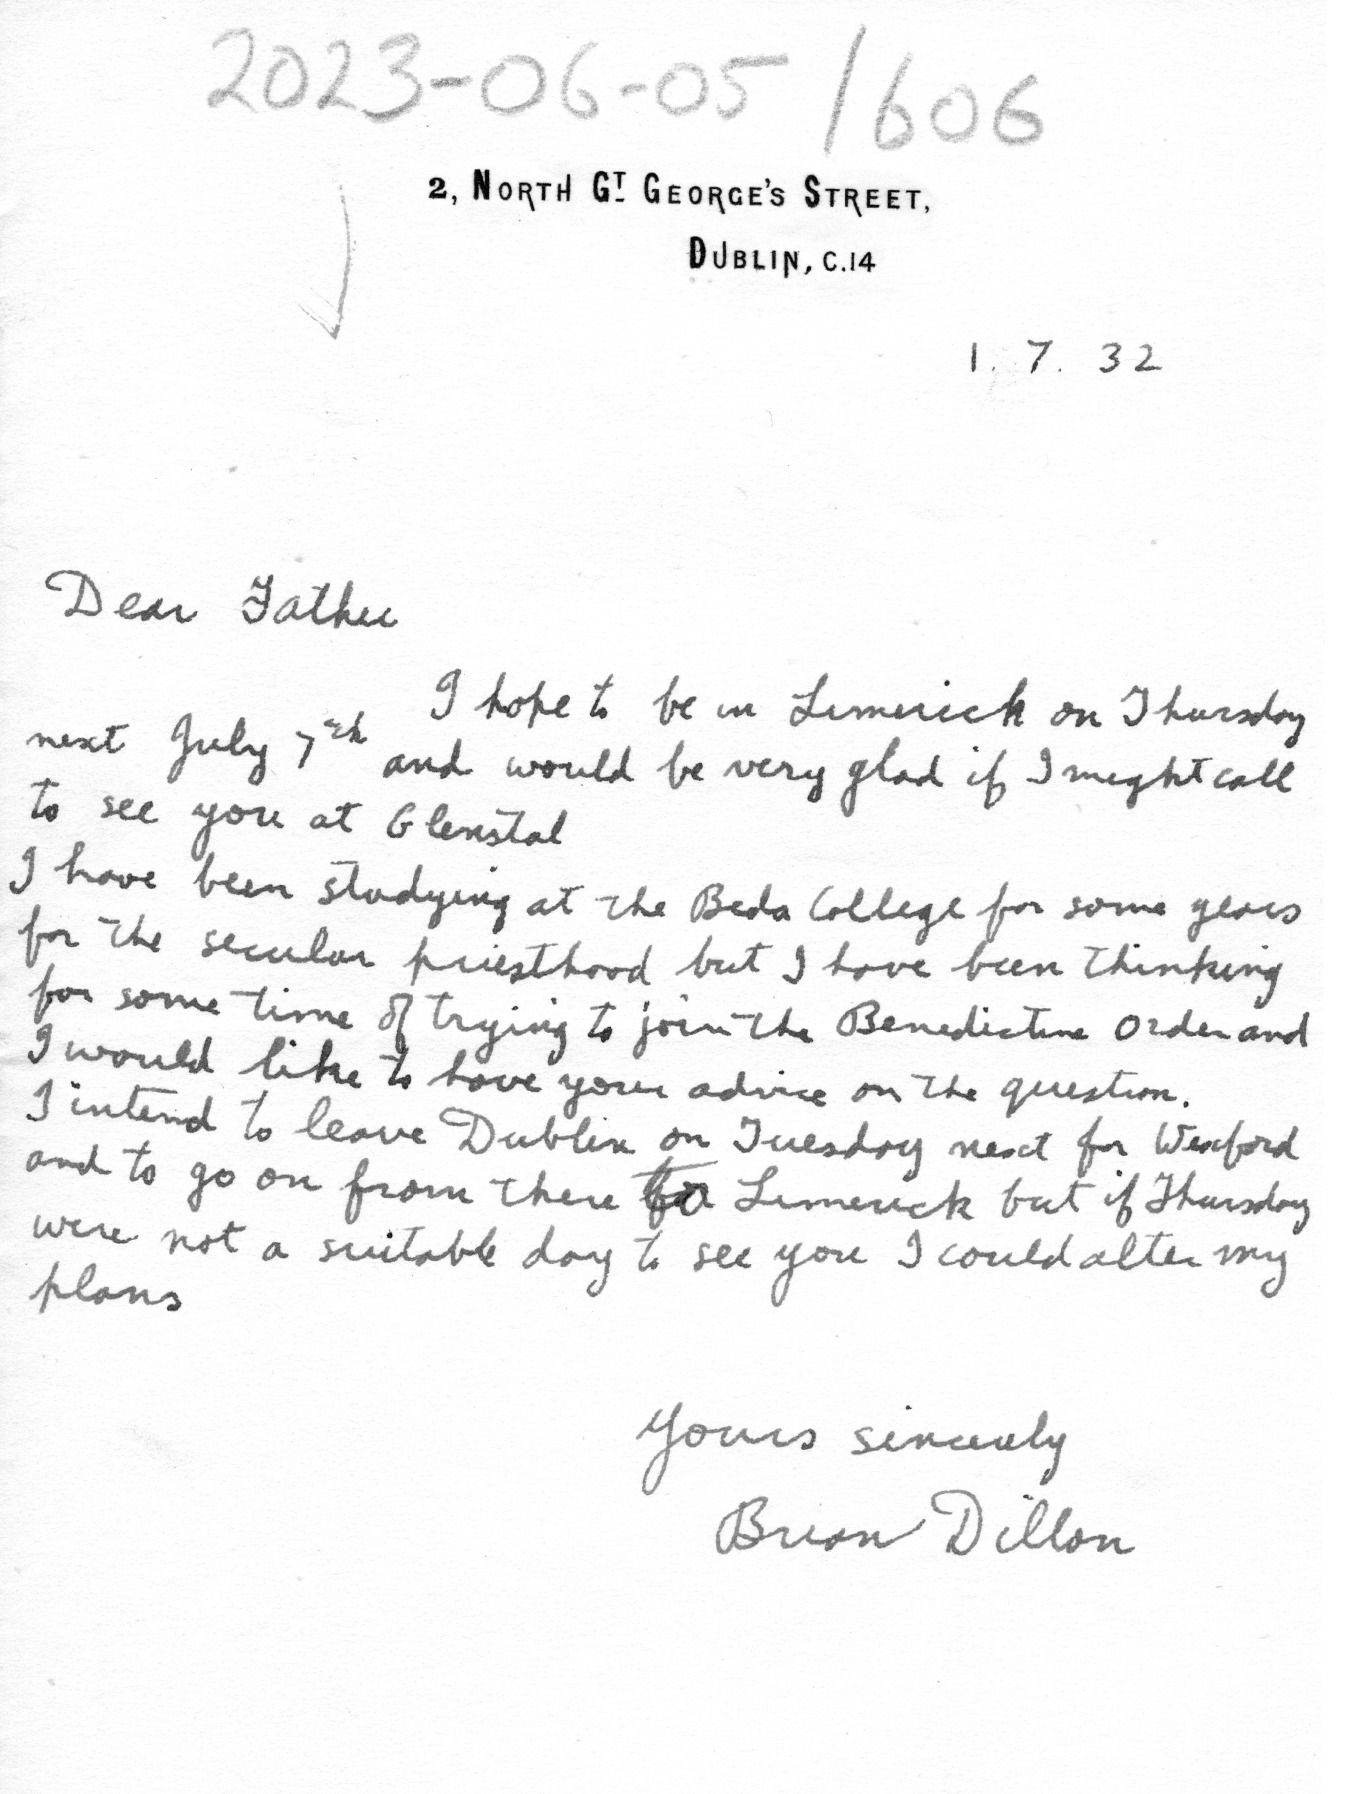 2023-06-05/606
2, NORTH GT GEORGE'S STREET,
DUBLIN, C.14
1. 7. 32
Dear Father
I hope to be in Limerick on Thursday
next July 7th and would be very glad if I might call
to see you at Glenstal
I have been studying at the Beda College for some years
for the secular priesthood but I have been thinking
for some time of trying to join the Benedictine Order and
I would like to have your advice on the question.
I intend to leave Dublin on Tuesday next for Wexford
and to go on from there to Limerick but if Thursday
were not a suitable day to see you I could alter my
plans
Yours sincerely
Brian Dillon